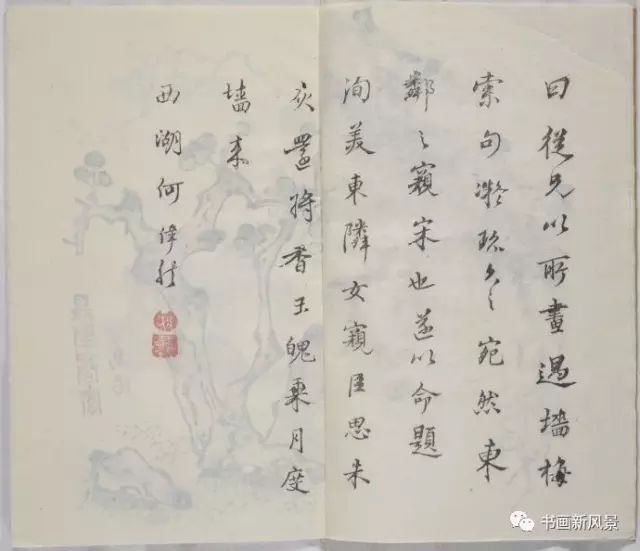 曰從兄以所畫過墻梅
索句凝久之宛然東
鄰之窺宋也遂以命題
洵美東隣女窺臣思未
灰還將香玉魄乘月度
墻来
西湖何偉然
书画新风景